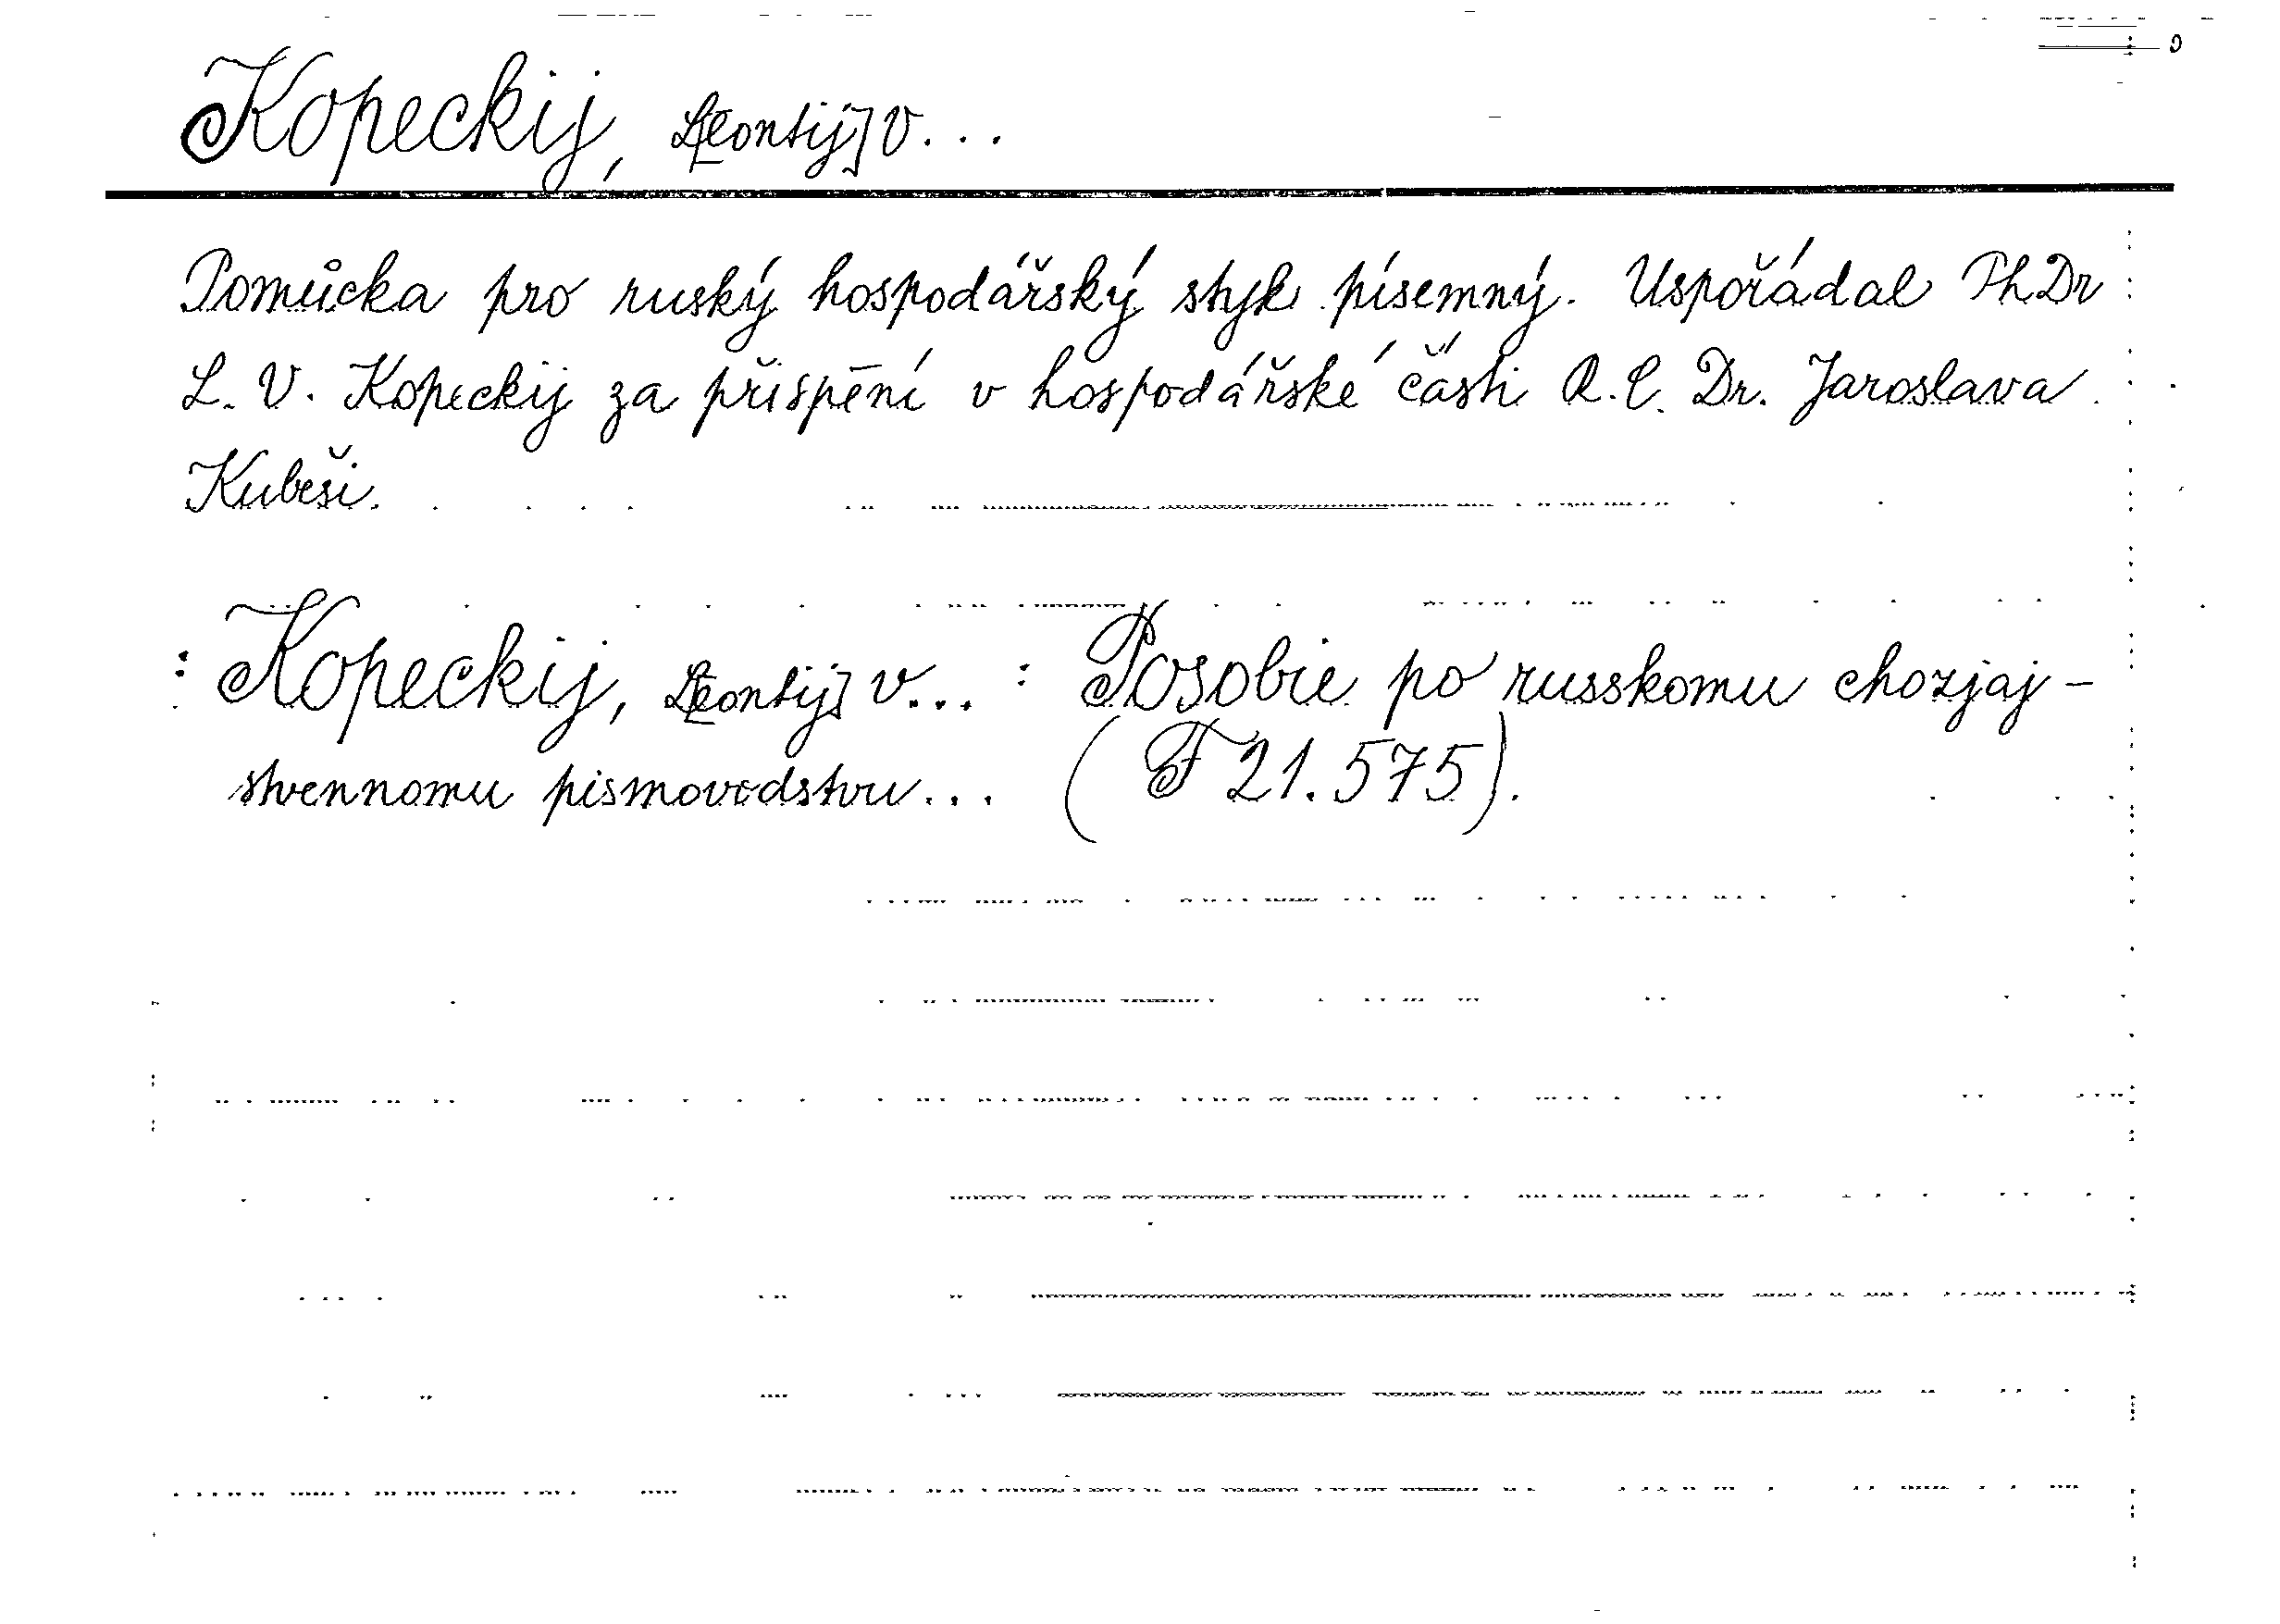 Kopeckij, L[eontij] V...
Pomůcka pro ruský hospodářský styk písemný. Uspořádal PhDr
L. V. Kopeckij za přispění v hospodářské části R. C. Dr. Jaroslava
Kubeši.
: Kopeckij, L[eontij] V... : Posobie po russkomu chozjaj-
stvennomu pismovodstvu... (F 21.575).